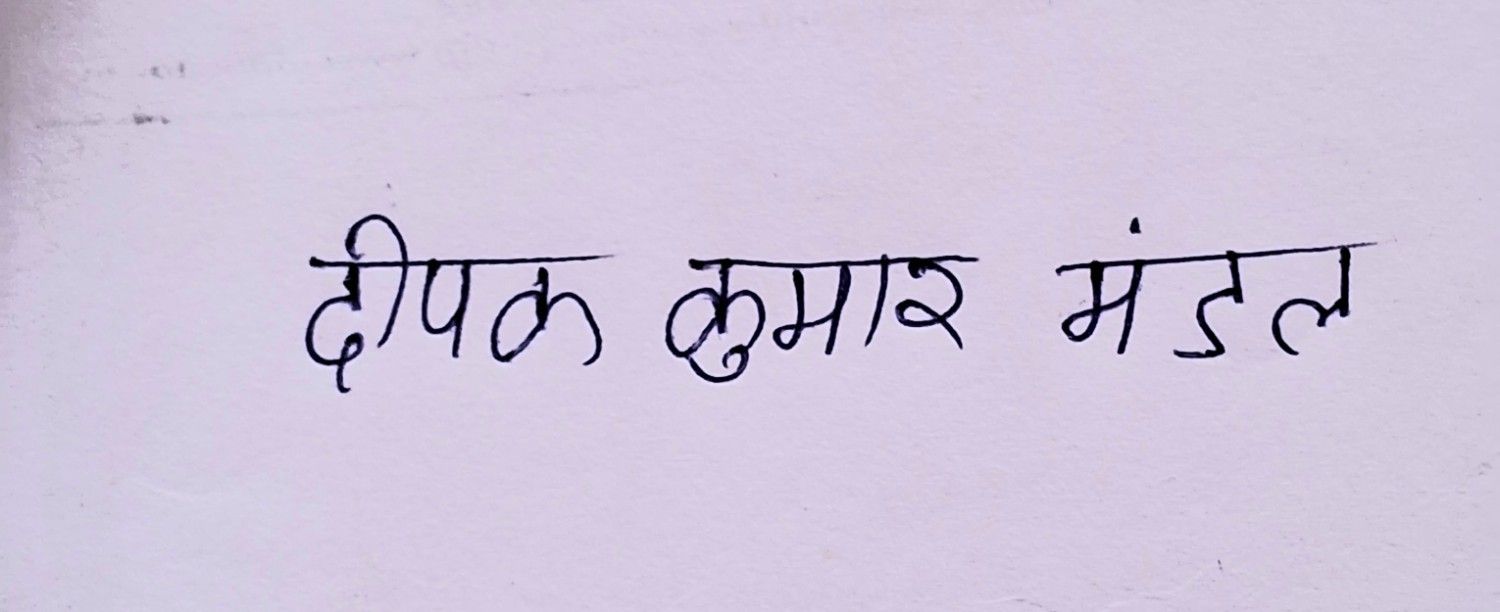 दीपक कुमार मंडल